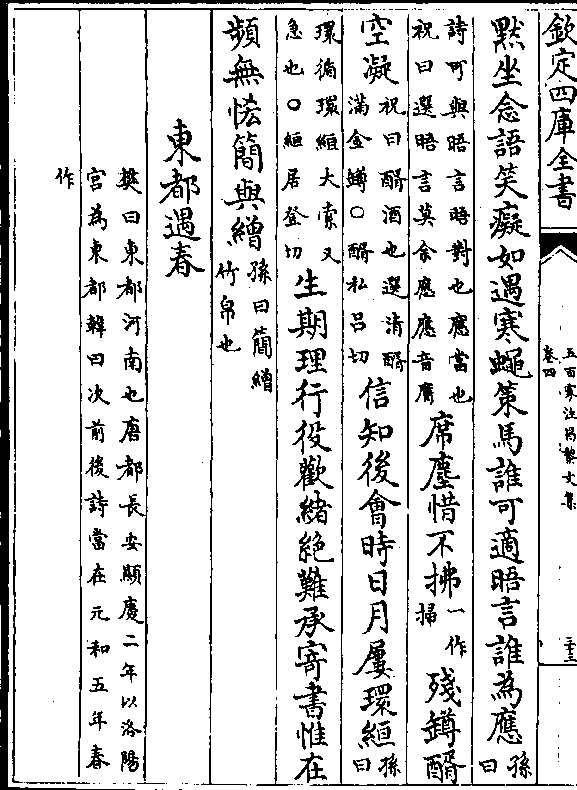 欽定四庫全書
五百家注昌黎文集
卷四
三十三
黙坐念語笑癡如遇寒蠅策馬誰可適晤言誰為應孫曰
詩可與晤言晤對也應當也祝曰選晤言莫余應應音膺席塵惜不拂一作掃殘罇醑
空凝祝曰醑酒也選清醑滿金罇○醑私呂切信知後會時日月屢環絙孫曰
環循環絙大索又急也○絙居登切生期理行役歡緒絶難承寄書惟在
頻無恡簡與繒孫曰簡繒竹帛也
東都遇春
樊曰東都河南也唐都長安顯慶二年以洛陽
宮為東都韓曰次前後詩當在元和五年春
作